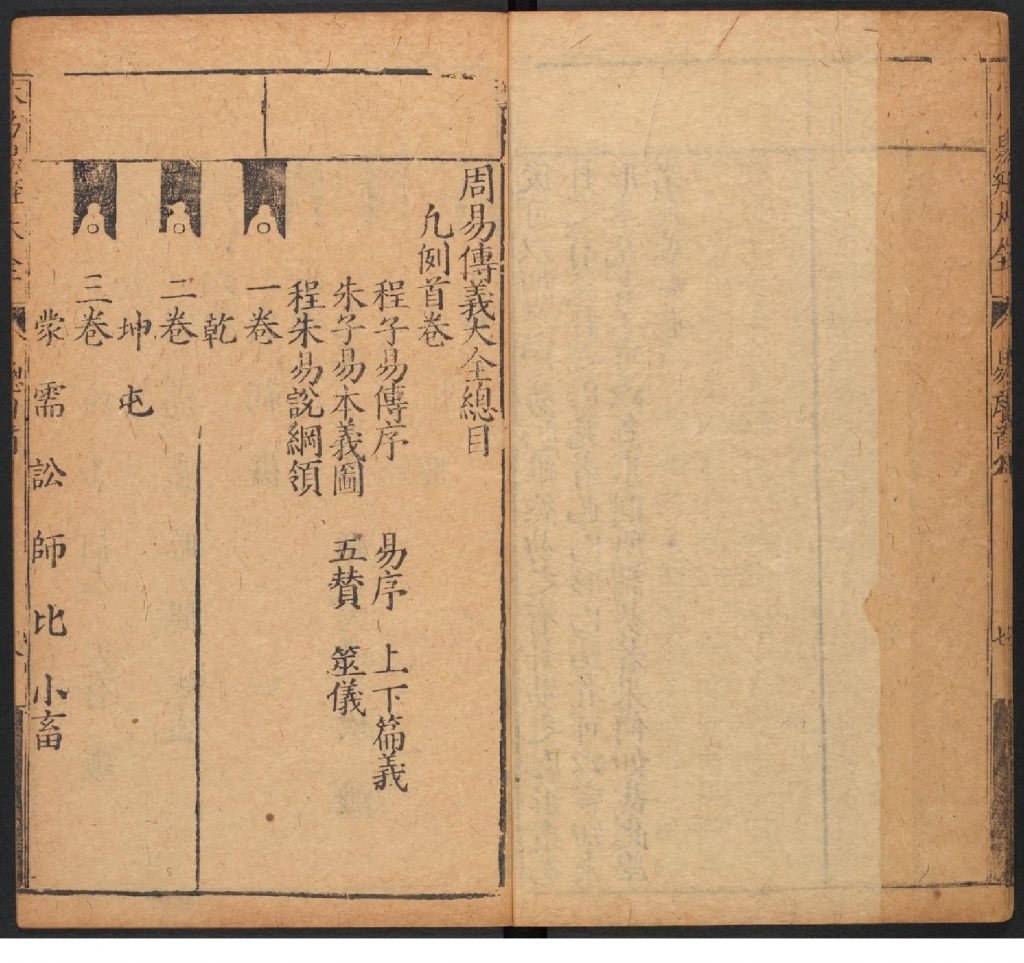 周易傳義大全總目
凡例首卷
程子易傳序 易序 上下篇義
朱子易本義圖 五賛 筮儀
程朱易說綱領
一卷
乾
二卷
坤 屯
三卷
蒙 需 訟 師 比 小畜